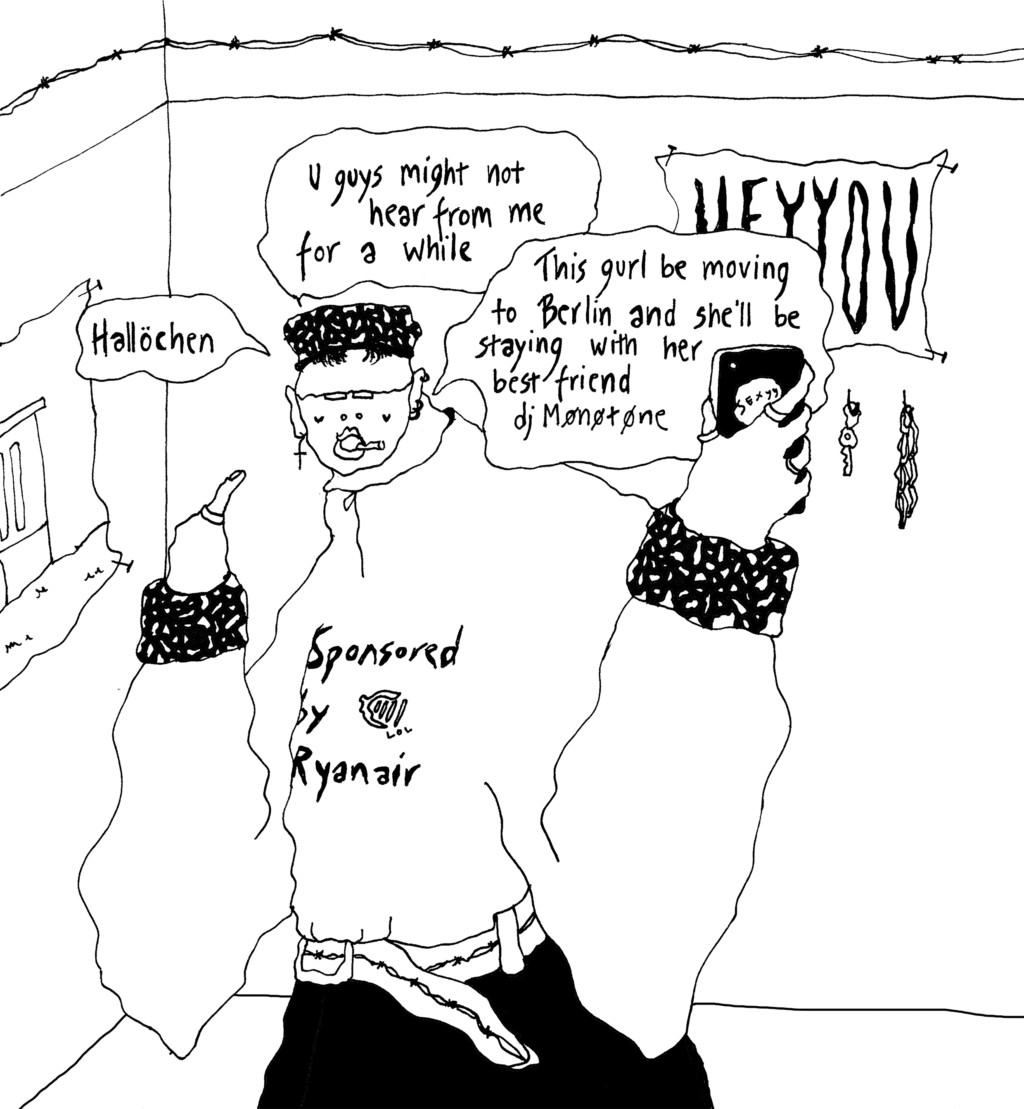 U guys might not
hear from me
for a while
HEYYOU
Hallöchen
This gurl be moving
to Berlin and she'll be
staying with her
best friend
dj Mønøtøne
Sexyy
Sponsored
by
LOL
Ryanair